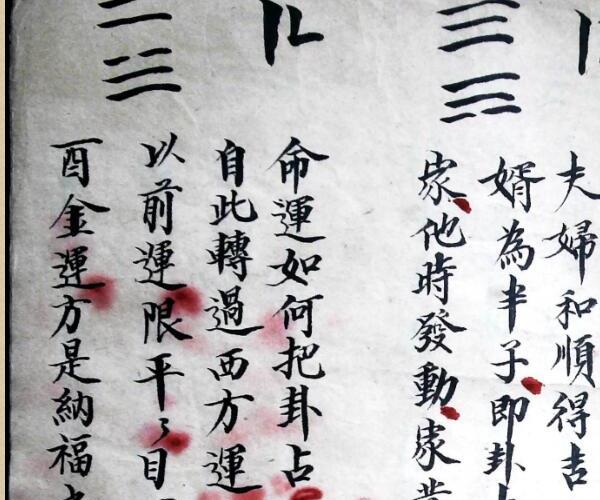 夫婦和順得吉
婿為半子即卦
家他時發動家業
命運如何把卦占
自此轉過西方運
以前運限平々目
酉金運方是納福